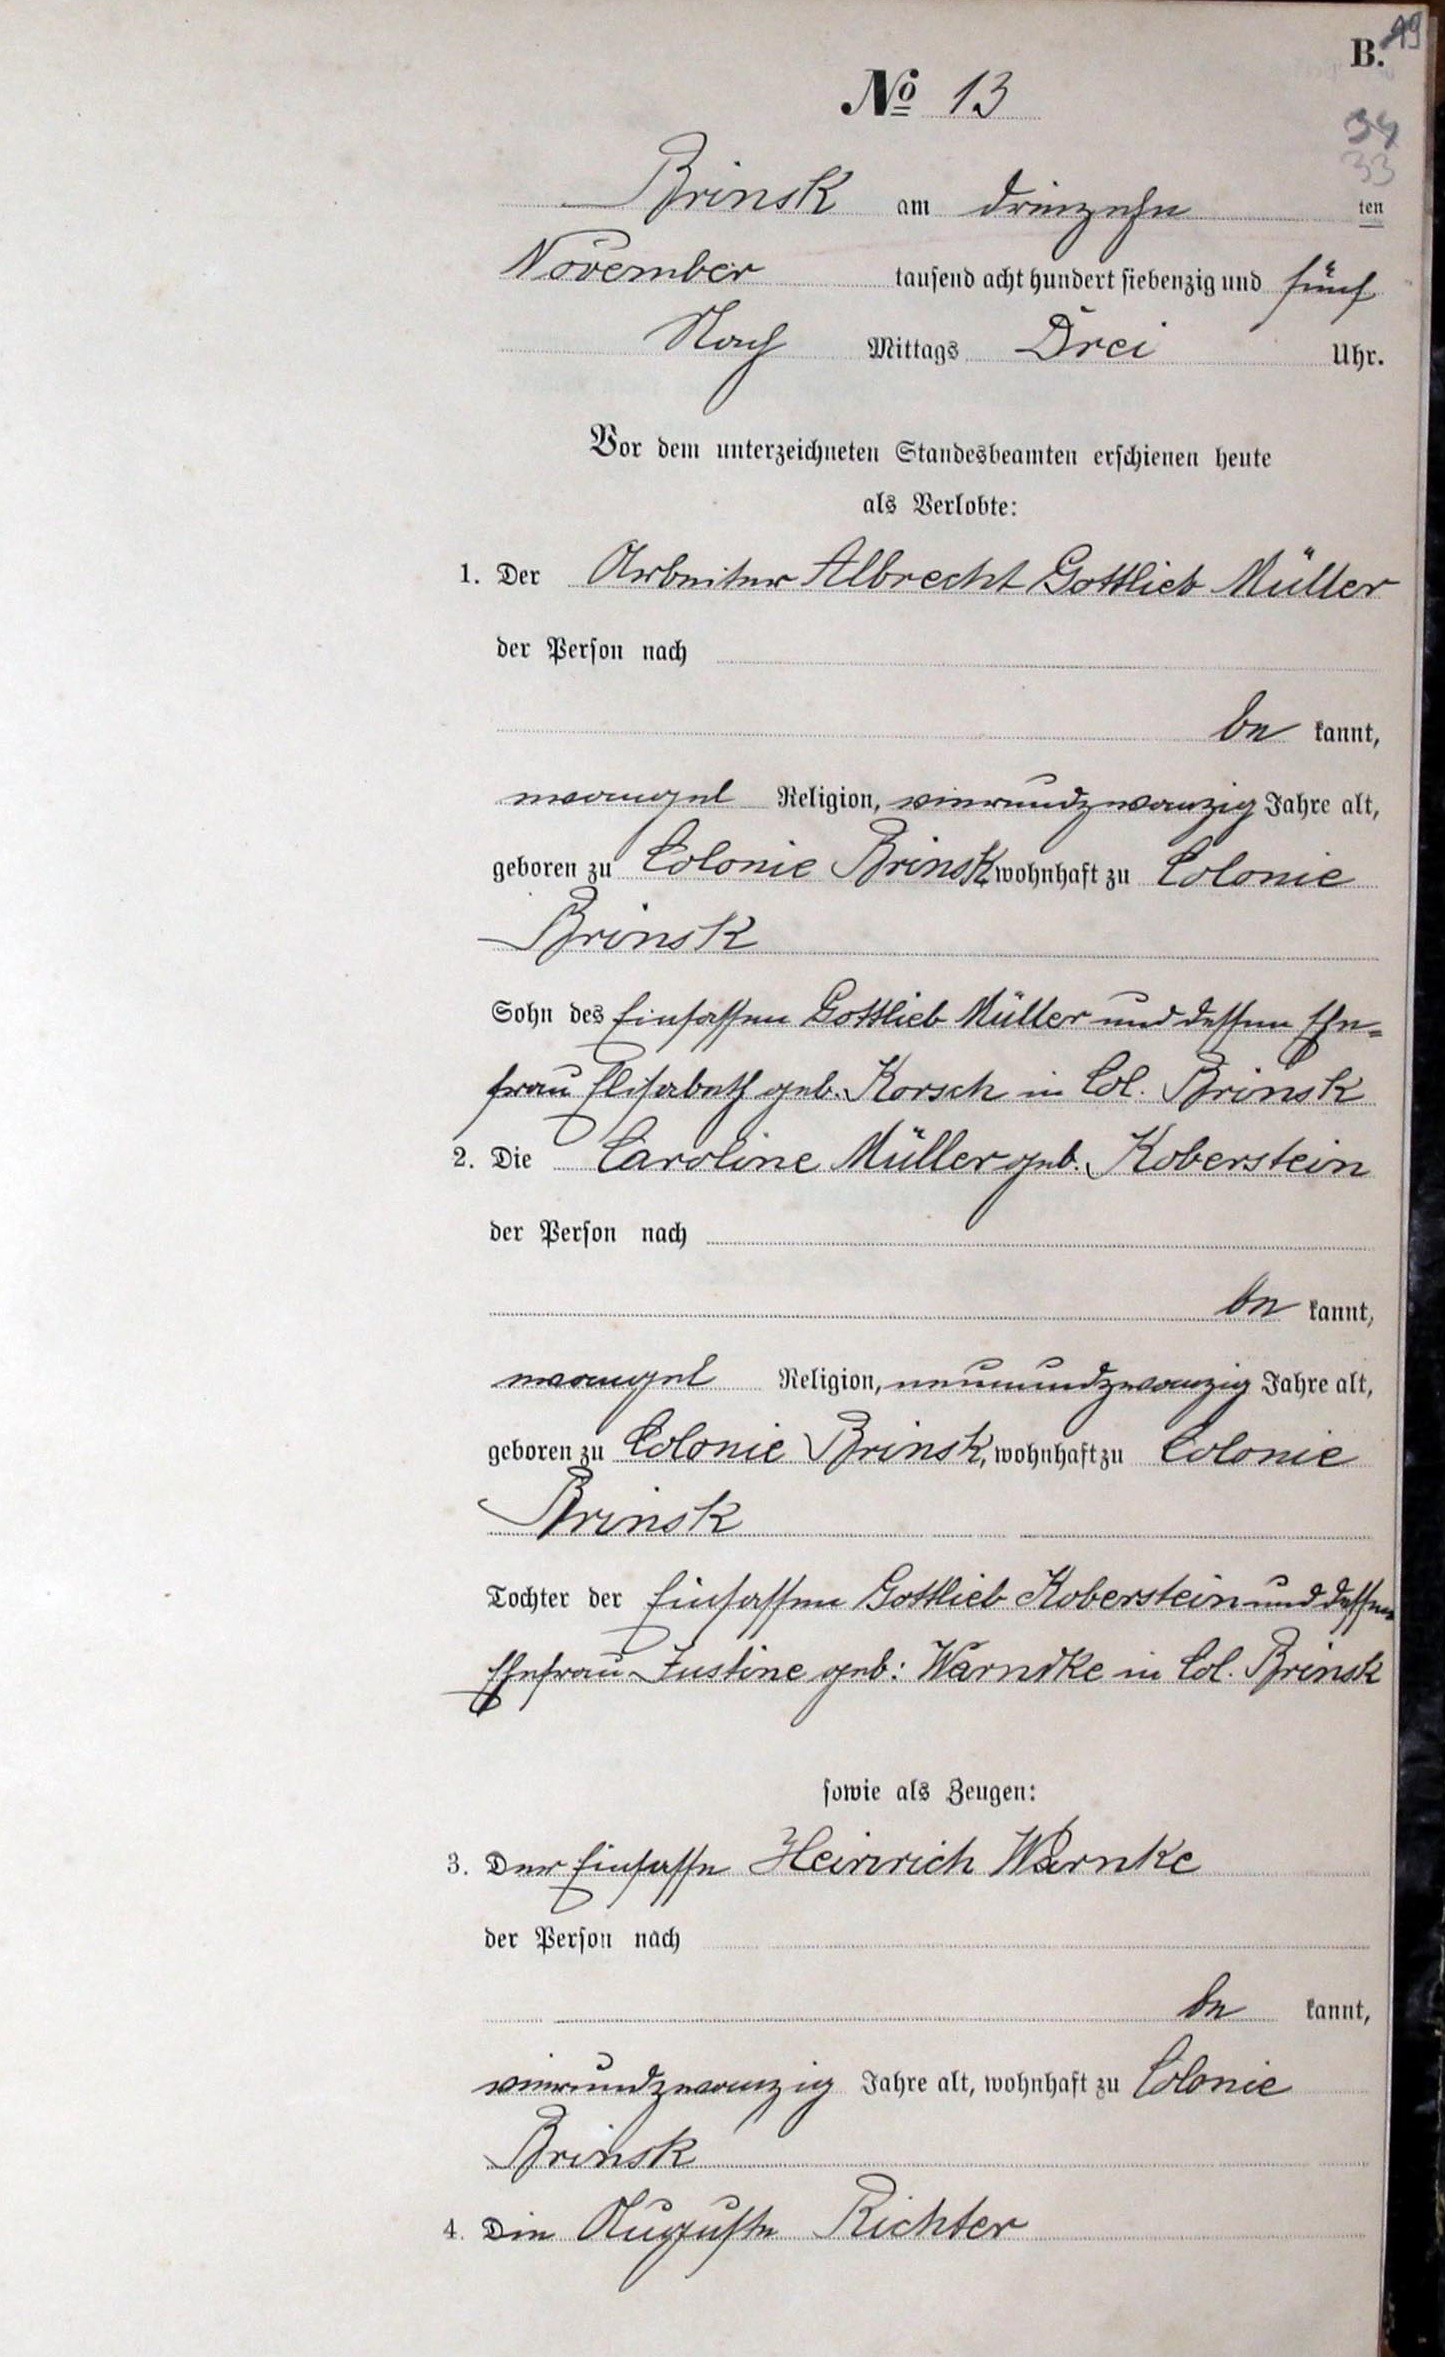 B. 19
No 13
34
33
Brinsk am dreizehn ten
November tausend acht hundert siebenzig und fünf
Nach Mittags Drei Uhr.
Vor dem unterzeichneten Standesbeamten erschienen heute
als Verlobte:
1. Der Arbeiter Albrecht Gottlieb Müller
der Person nach
be kannt,
evangel Religion, vierundzwanzig Jahre alt,
geboren zu Colonie Brinsk, wohnhaft zu Colonie
Brinsk
Sohn des Einsassen Gottlieb Müller und dessen Ehe=
frau Elisabeth geb. Korsch in Col. Brinsk
2. Die Caroline Müller geb. Koberstein
der Person nach
be kannt,
evangel Religion, neunundzwanzig Jahre alt,
geboren zu Colonie Brinsk, wohnhaft zu Colonie
Brinsk
Tochter der Einsassen Gottlieb Koberstein und dessen
Ehefrau Justine geb: Warndke in Col. Brinsk
sowie als Zeugen:
3. Der Einsasse Heinrich Warnke
der Person nach
be kannt,
vierundzwanzig Jahre alt, wohnhaft zu Colonie
Brinsk
4. Die Auguste Richter